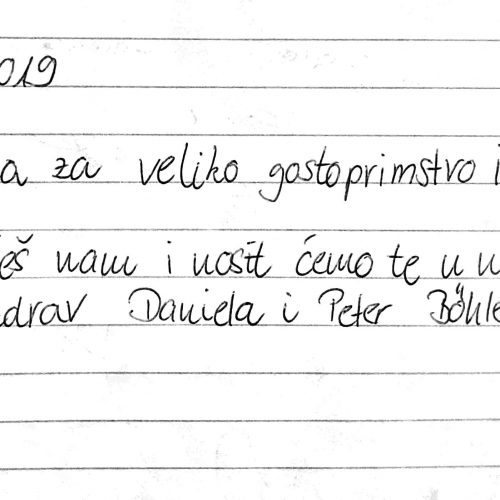 019
a za veliko gostoprimstvo i
eš nam i nosit ćemo te u
drav Daniela i Peter Böhle